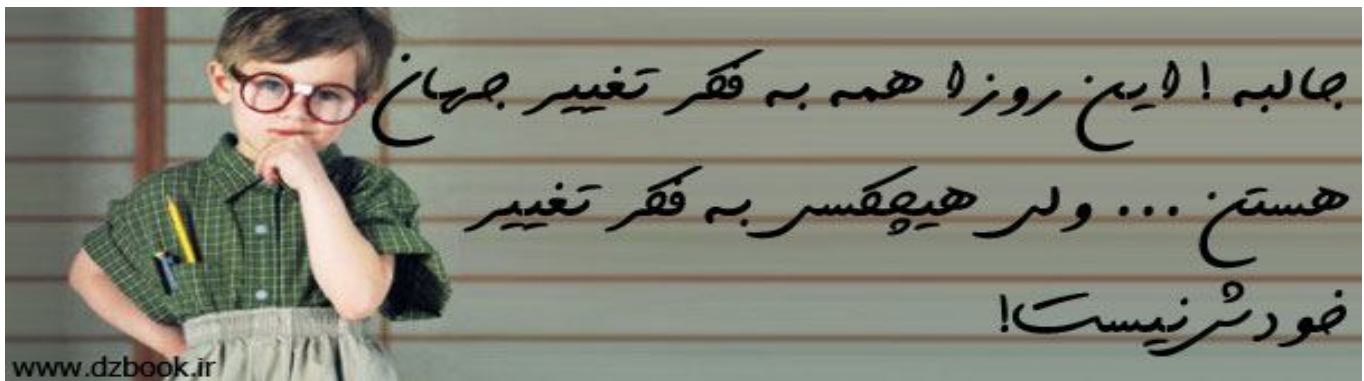 جالبه ! این روزا همه به فکر تغییر جهان
هستن ... ولی هیچکسی به فکر تغییر
خودش نیست!
www.dzbook.ir